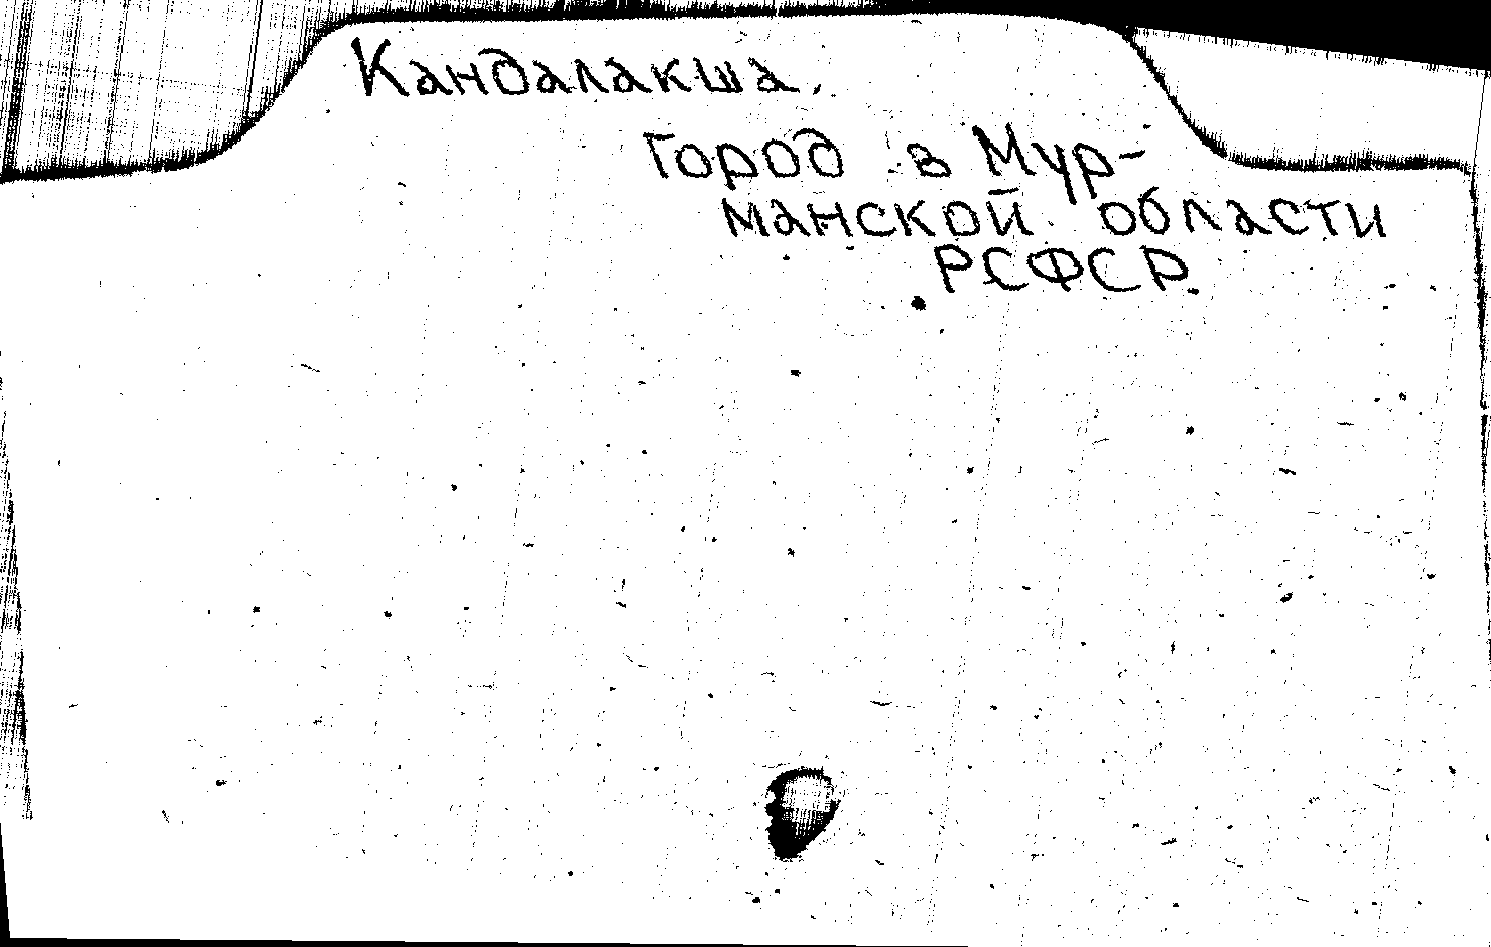 Кандалакша.
Город в Мур-
манской области
РСФСР.